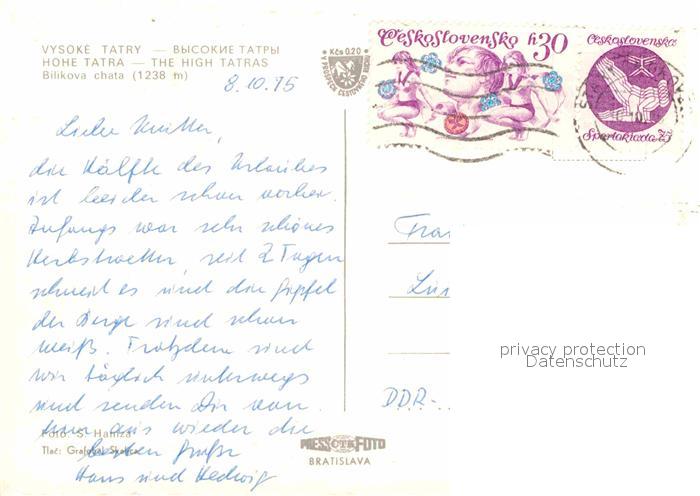 VYSOKÉ TATRY — ВЫСОКИЕ ТАТРЫ
HOHE TATRA — THE HIGH TATRAS
Bilíkova chata (1238 m)
8.10.75
Kčs 0.20
Československo h 30
Československá
Spartakiáda 75
Liebe Mutter,
die Hälfte des Urlaubes
ist leider schon vorbei.
Anfangs war sehr schönes
Herbstwetter, seit 2 Tagen
schneit es und die Gipfel
der Berge sind schon
weiß. Trotzdem sind
wir täglich unterwegs
und senden Dir von
hier aus wieder die
besten Grüße
Hans und Hedwig
Frau
DDR-
privacy protection
Datenschutz
Foto: S. Hamza
Tlač: Grafobal Skalica
PRESS ČTK FOTO
BRATISLAVA